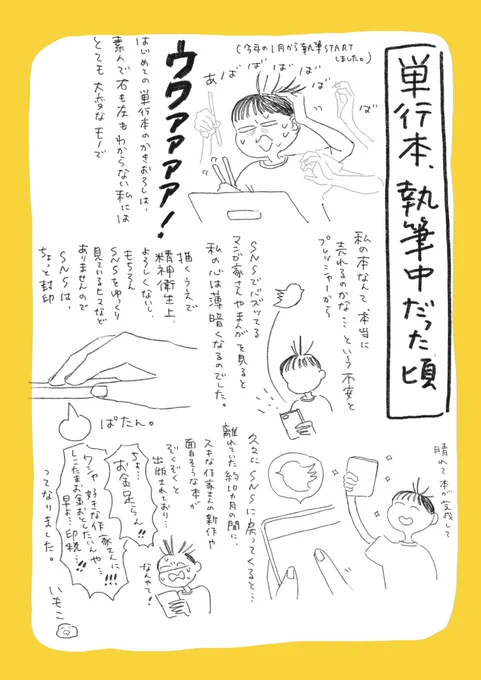 単行本、執筆中だった頃
(今年の1月から執筆START
しました。)
あばばばばばば
ウワァァァァ!
はじめての単行本のかきおろしは、
素人で右も左もわからない私には
とても大変なモノで
私の本なんて、本当に
売れるのかな…という不安と
プレッシャーから
SNSでバズッてる
マンガ家さんやまんがを見ると
私の心は薄暗くなるのでした。
描くうえで
精神衛生上、
よろしくないし、
もちろん
SNSをゆっくり
見ているヒマなど
ありませんので
SNSは、
ちょっと封印
ぱたん。
晴れて本が完成して
久々にSNSに戻ってくると…
離れていた約10カ月の間に、
スキな作家さんの新作や
面白そうな本が
ぞくぞくと
出版されており…
なんやて!
ちょ…
お金足らん!!
ワシャ好きな作家さんに
しこたまお金おとしたいんや…!!!
早よ…印税…!!
ってなりました。
いもこ